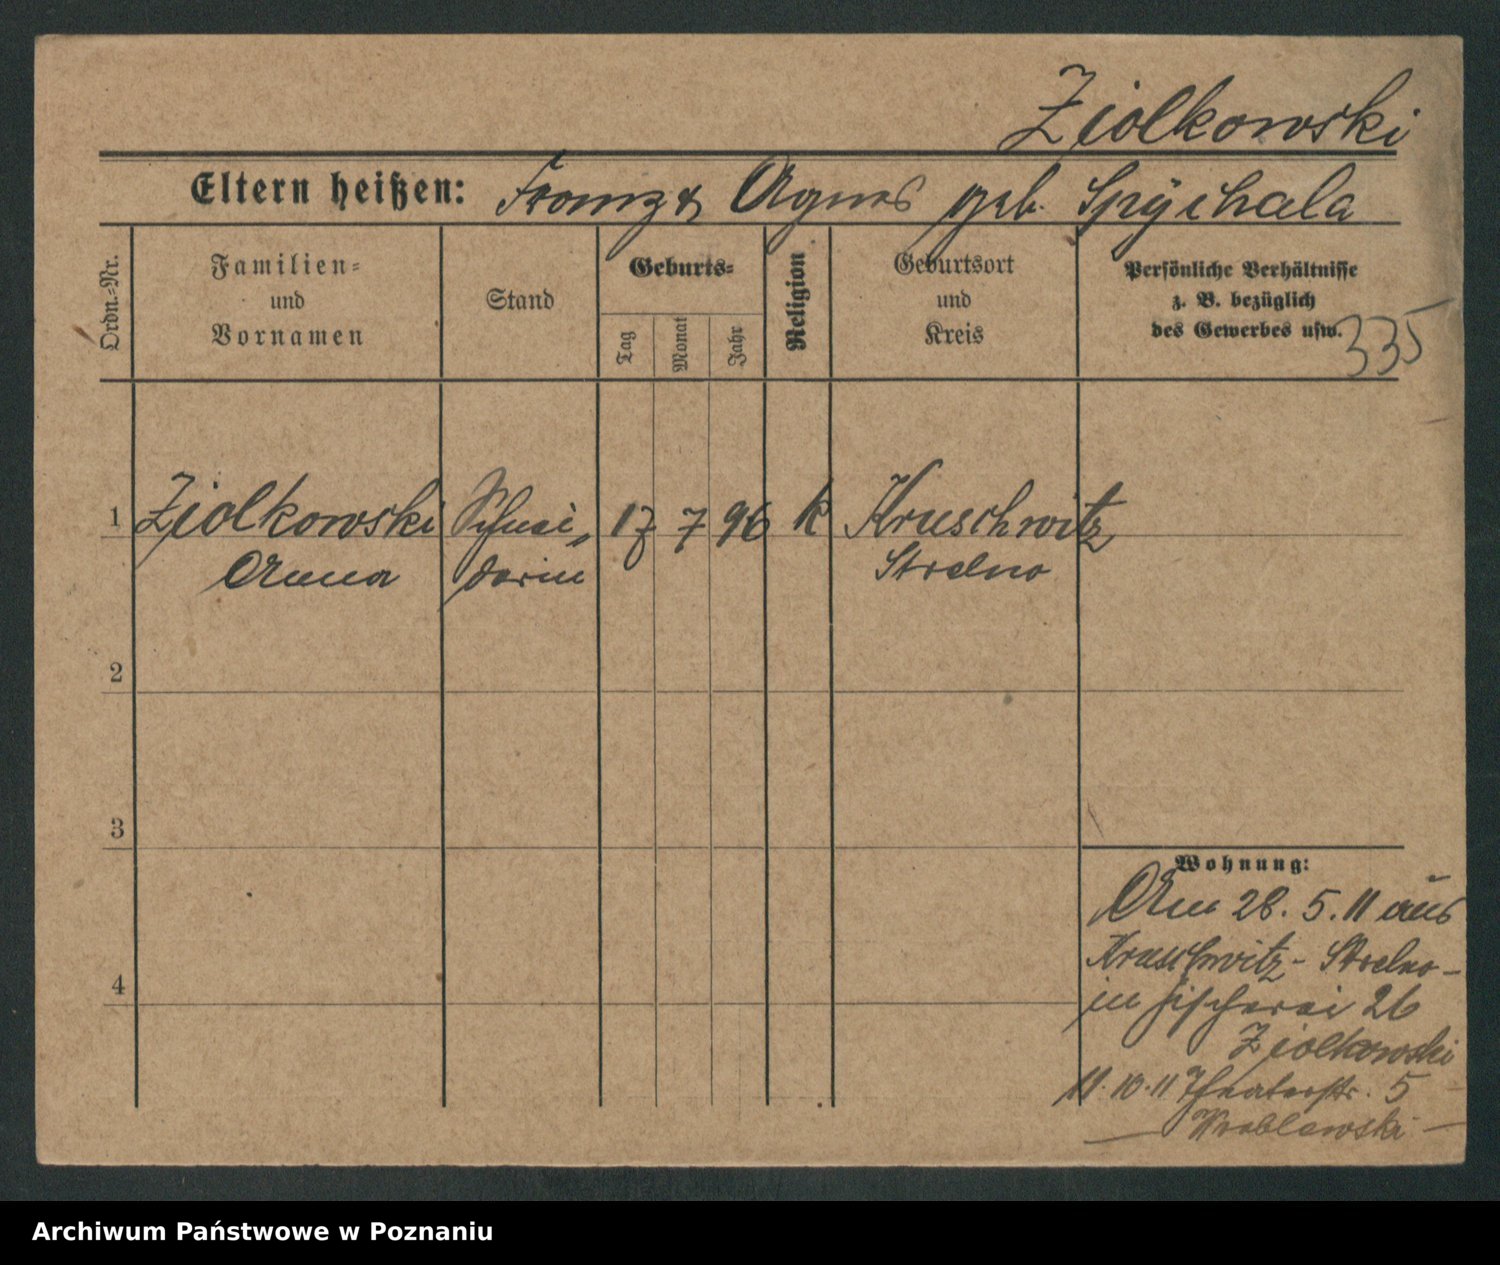 Ziolkowski
Eltern heißen: Franz & Agnes geb. Spychala
Ordn.-Nr.
Familien-
und
Vornamen
Stand
Geburts-
Tag
Monat
Jahr
Religion
Geburtsort
und
Kreis
Persönliche Verhältnisse
z. B. bezüglich
des Gewerbes usw.
335
1 Ziolkowski Schnei- 17 7 96 k Kruschwitz
Anna derin Strelno
2
3
4
Wohnung:
Am 28. 5. 11 aus
Kruschwitz - Strelno -
in Fischerei 26
Ziolkowski
11. 10. 11 Theaterstr. 5
Wroblewski
Archiwum Państwowe w Poznaniu